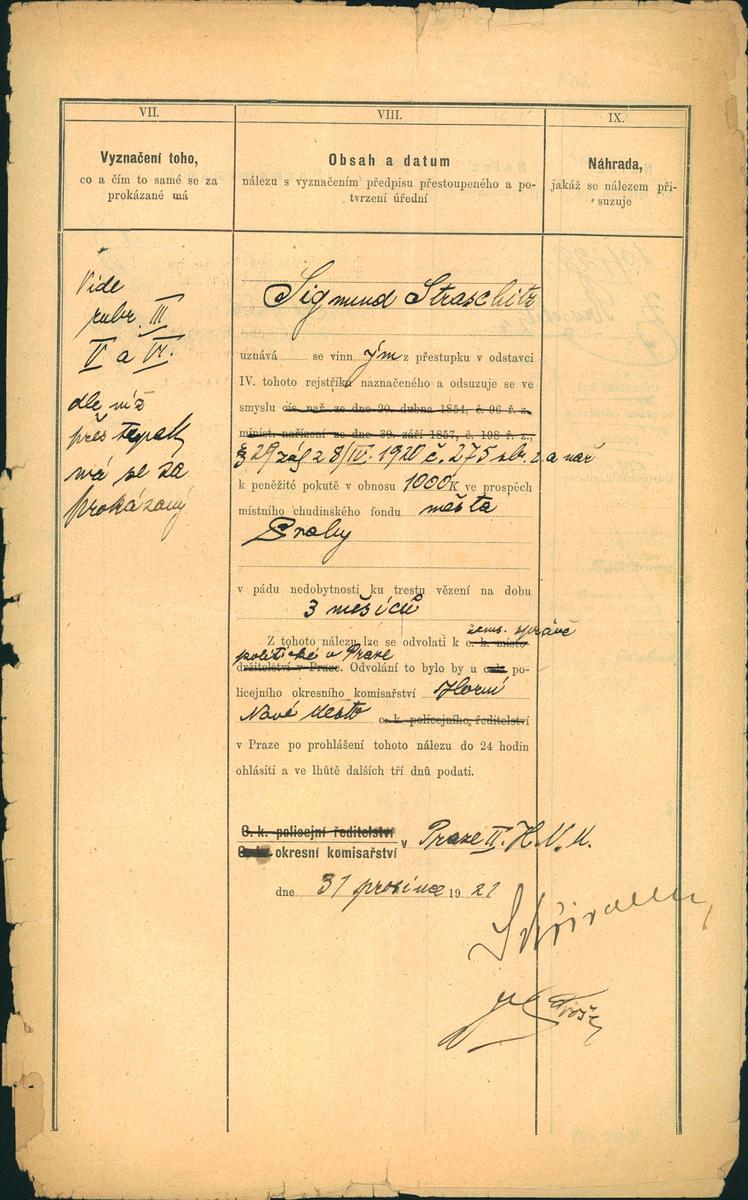 VII.
Vyznačení toho,
co a čím to samé se za
prokázané má
Vide
rubr. III
V a VI.
dle níž
přestupek
má se za
prokázaný
VIII.
Obsah a datum
nálezu s vyznačením předpisu přestoupeného a po-
tvrzení úřední
Sigmund Straschitz
uznává se vinn ým z přestupku v odstavci
IV. tohoto rejstříku naznačeného a odsuzuje se ve
smyslu cís. nař. ze dne 20. dubna 1854, č. 96 ř. z.,
minist. nařízení ze dne 30. září 1857, č. 198 ř. z.,
§ 29 zák z 8/IV. 1920 č. 275 sbr. z. a nař
k peněžité pokutě v obnosu 1000 K ve prospěch
místního chudinského fondu města
Prahy
v pádu nedobytnosti ku trestu vězení na dobu
3 měsíců
zems. správě
Z tohoto nálezu lze se odvolati k c. k. místo-
politické v Praze
držitelství v Praze. Odvolání to bylo by u c. k. po-
licejního okresního komisařství Horní
Nové Město c. k. policejního, ředitelství
v Praze po prohlášení tohoto nálezu do 24 hodin
ohlásiti a ve lhůtě dalších tří dnů podati.
C. k. policejní ředitelství
C. k. okresní komisařství v Praze II. H. N. M.
dne 31 prosince 1921
IX.
Náhrada,
jakáž se nálezem při-
suzuje